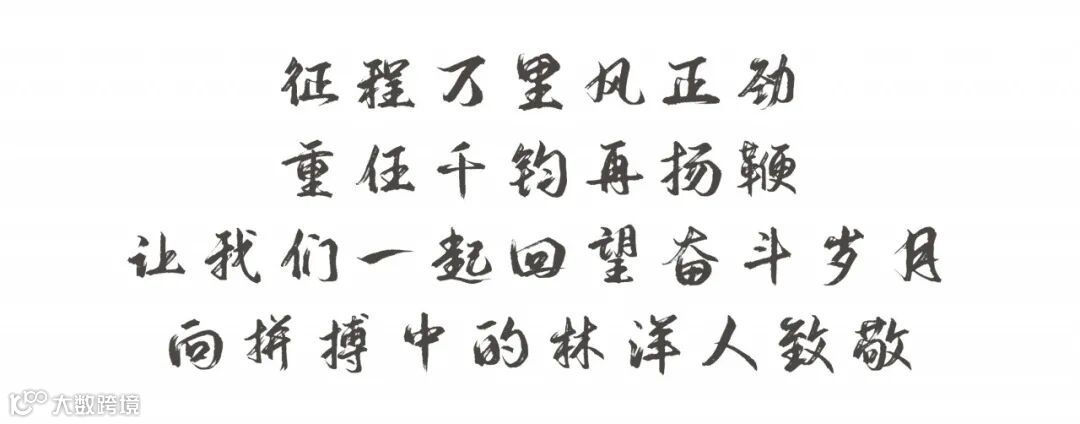 征程万里风正劲
重任千钧再扬鞭
让我们一起回望奋斗岁月
向拼搏中的林洋人致敬
大数跨境